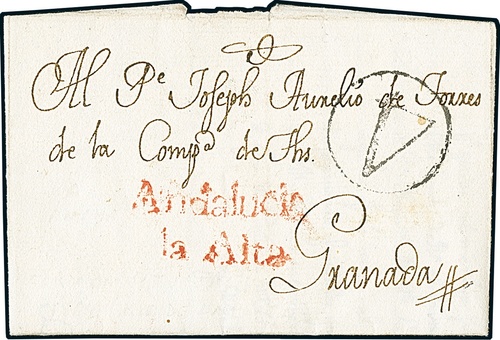 Al Pe Joseph Aurelio de Torres
de la Compa de Jhs.
Andalucia
la Alta
Granada